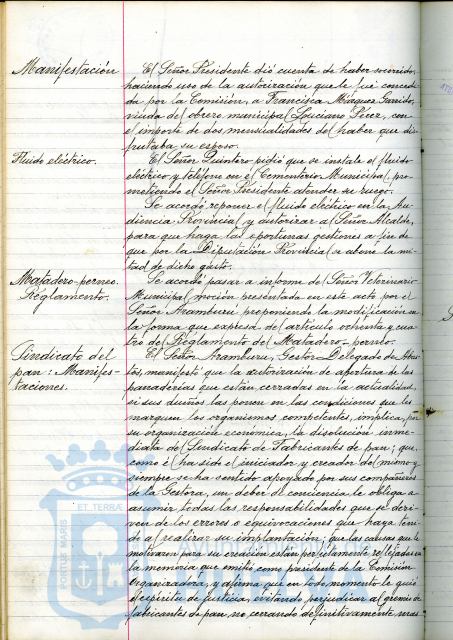 Manifestación
El Señor Presidente dió cuenta de haber socorrido,
haciendo uso de la autorización que le fué concedi-
da por la Comisión, a Francisca Márquez Garrido,
viuda del obrero municipal Louciano Pérez, con
el importe de dos mensualidades del haber que dis-
frutaba su esposo.
Fluido eléctrico.
El Señor Quintero pidió que se instale el fluido
eléctrico y teléfono en el Cementerio Municipal, pro-
metiendo el Señor Presidente atender su ruego.
Se acordó reponer el fluido eléctrico en la Au-
diencia Provincial y autorizar al Señor Alcalde,
para que haga las oportunas gestiones a fin de
que por la Diputación Provincial se abone la mi-
tad de dicho gasto.
Matadero-porneo.
Reglamento.
Se acordó pasar a informe del Señor Veterinario
Municipal moción presentada en este acto por el
Señor Aramburu proponiendo la modificación en
la forma que expresa del artículo ochenta y cua-
tro del Reglamento del Matadero-porneo.
Sindicato del
pan: Manifes-
taciones.
El Señor Aramburu, Gestor Delegado de Abas-
tos, manifestó que la autorización de apertura de las
panaderías que están cerradas en la actualidad,
si sus dueños las ponen en las condiciones que les
marquen los organismos competentes, implica, en
su organización económica, la disolución inme-
diata del Sindicato de Fabricantes de pan; que,
como él ha sido el iniciador y creador del mismo y
siempre se ha sentido apoyado por sus compañeros
de la Gestora, un deber de conciencia le obliga a
asumir todas las responsabilidades que se deri-
ven de los errores o equivocaciones que haya teni-
do al realizar su implantación; que las causas que le
motivaron para su creación están perfectamente reflejadas en
la memoria que emitió como presidente de la Comisión
Organizadora, y afirma que en todo momento le guió
el espíritu de justicia, evitando perjudicar al gremio de
fabricantes de pan, no cerrando definitivamente mas
PORTUS MARIS ET TERRÆ